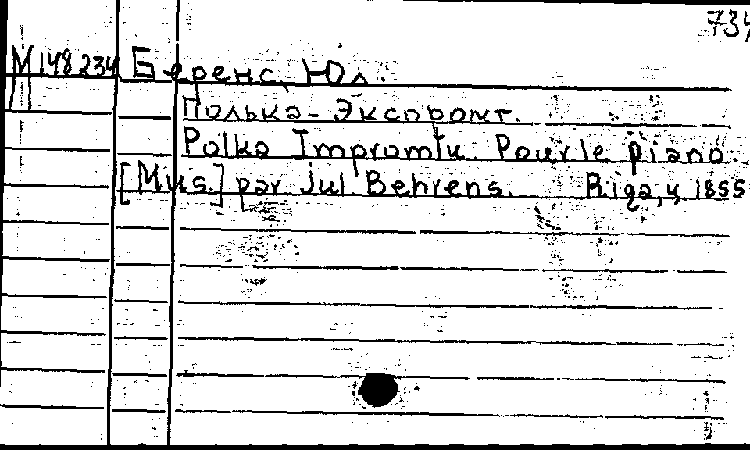 734
M 148234 Беренс, Юл.
Полька-Экспромт.
Polka Impromtu. Pour le piano.
[Mus.] par Jul Behrens. Riga, ц. 1855